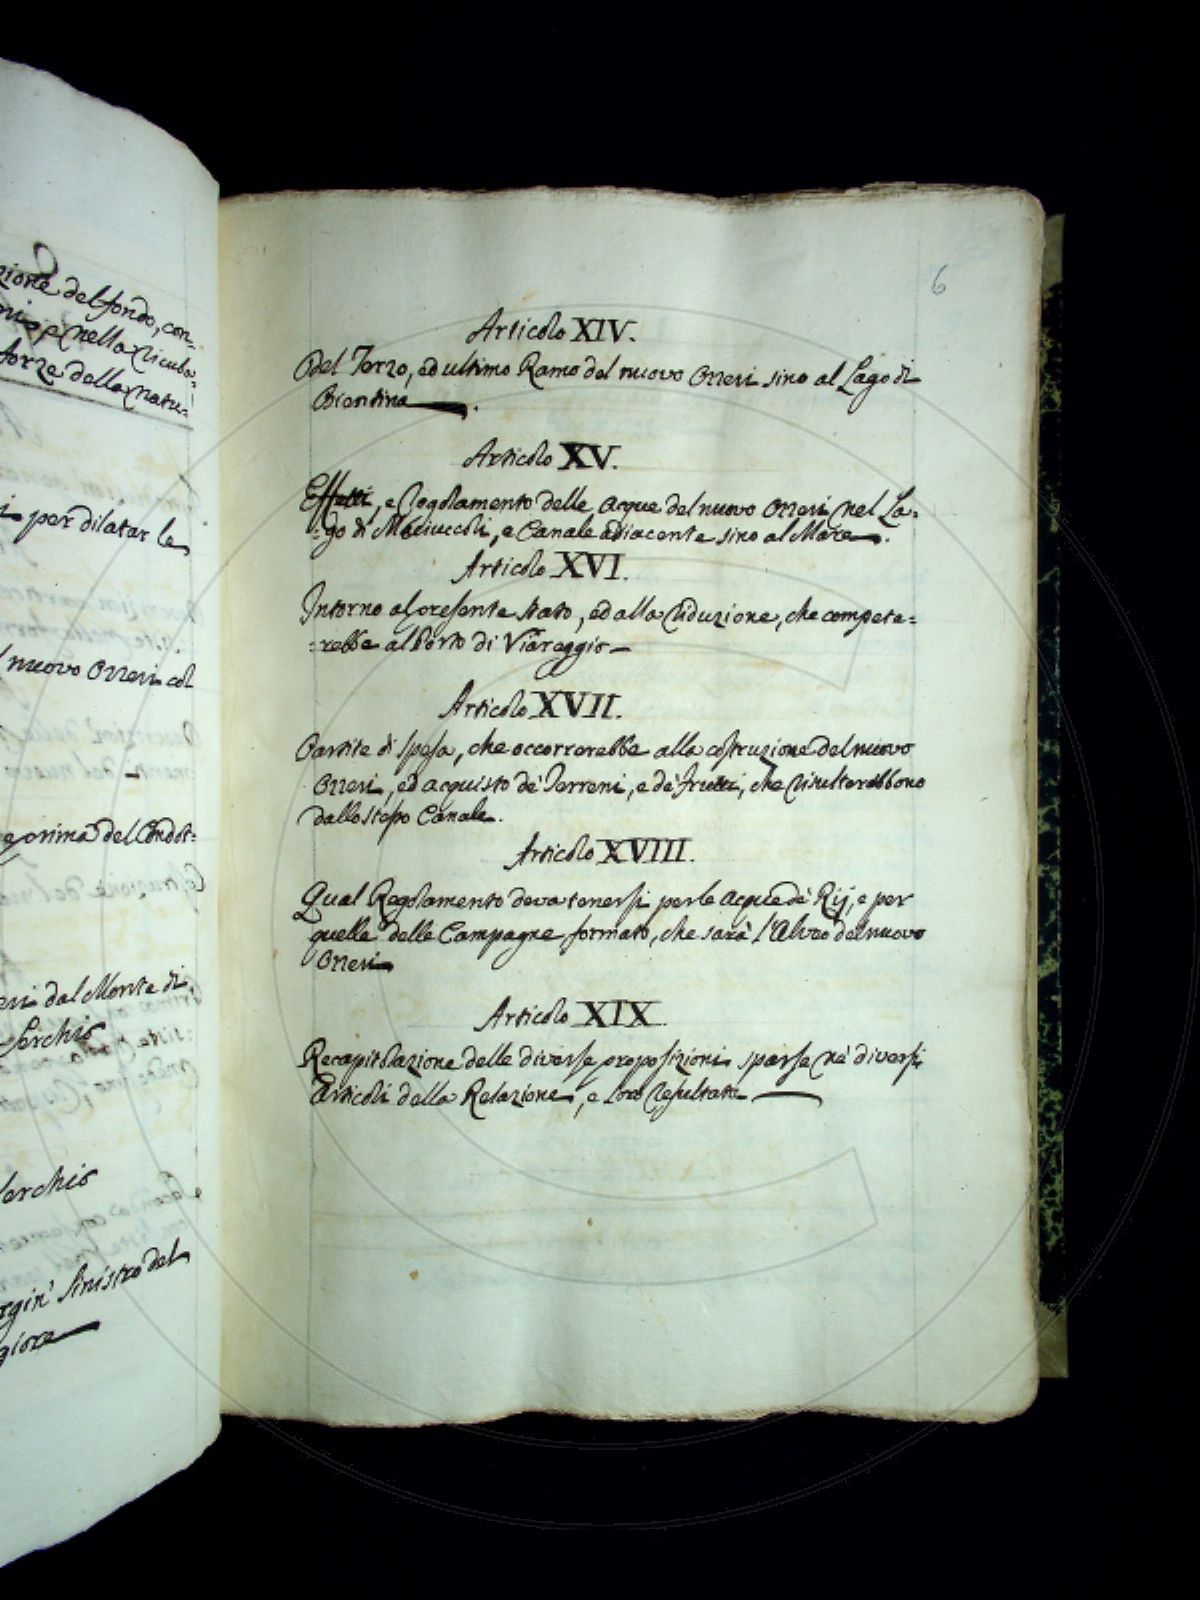 zione del fondo, con-
nella ricuba-
forze della natu-
i per dilatar le
l nuovo Ozzeri col
e prima del Condot-
eri dal Monte di
Serchio
Serchio
rgin' sinistro del
giore
6
Articolo XIV.
Del Terzo, ed ultimo Ramo del nuovo Ozzeri sino al Lago di
Bientina.
Articolo XV.
Effetti, e Regolamento delle Acque del nuovo Ozzeri nel La-
-go di Maciuccoli, e Canale adiacente sino al Mare.
Articolo XVI.
Intorno al presente stato, ed alla riduzione, che compete=
=rebbe al Porto di Viareggio
Articolo XVII.
Partite di spesa, che occorrerebbe alla costruzione del nuovo
Ozzeri, ed acquisto de' Terreni, e de' frutti, che risulterebbono
dallo stesso Canale.
Articolo XVIII.
Qual Regolamento deva tenersi per le Acque de' Rij, e per
quelle delle Campagne formato, che sarà l'Alveo del nuovo
Ozzeri
Articolo XIX.
Recapitolazione delle diverse proposizioni sparse nè diversi
Articoli della Relazione, e loro resultato